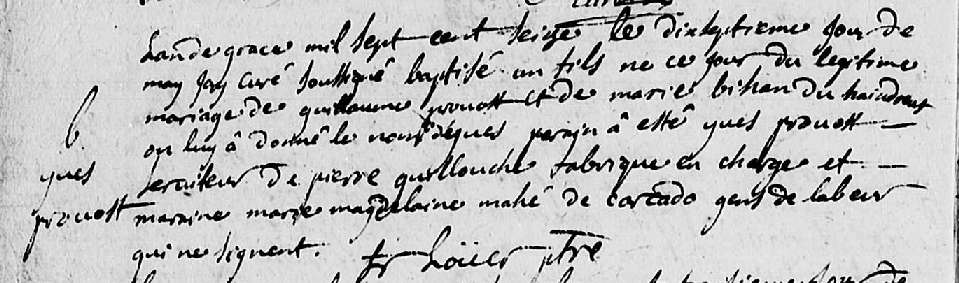 Lan de grace mil sept cent seize le dixseptieme jour de
may jay curé soussigné baptisé un fils ne ce jour du legitime
mariage de guillaume provost et de marie bihan du
b. on luy â donné le nom dyques parain â esté yques provost
yques serviteur de pierre guillouche fabrique en charge et
provost maraine marie magdelaine mahé de carcado gens de labeur
qui ne signent. fr ptre